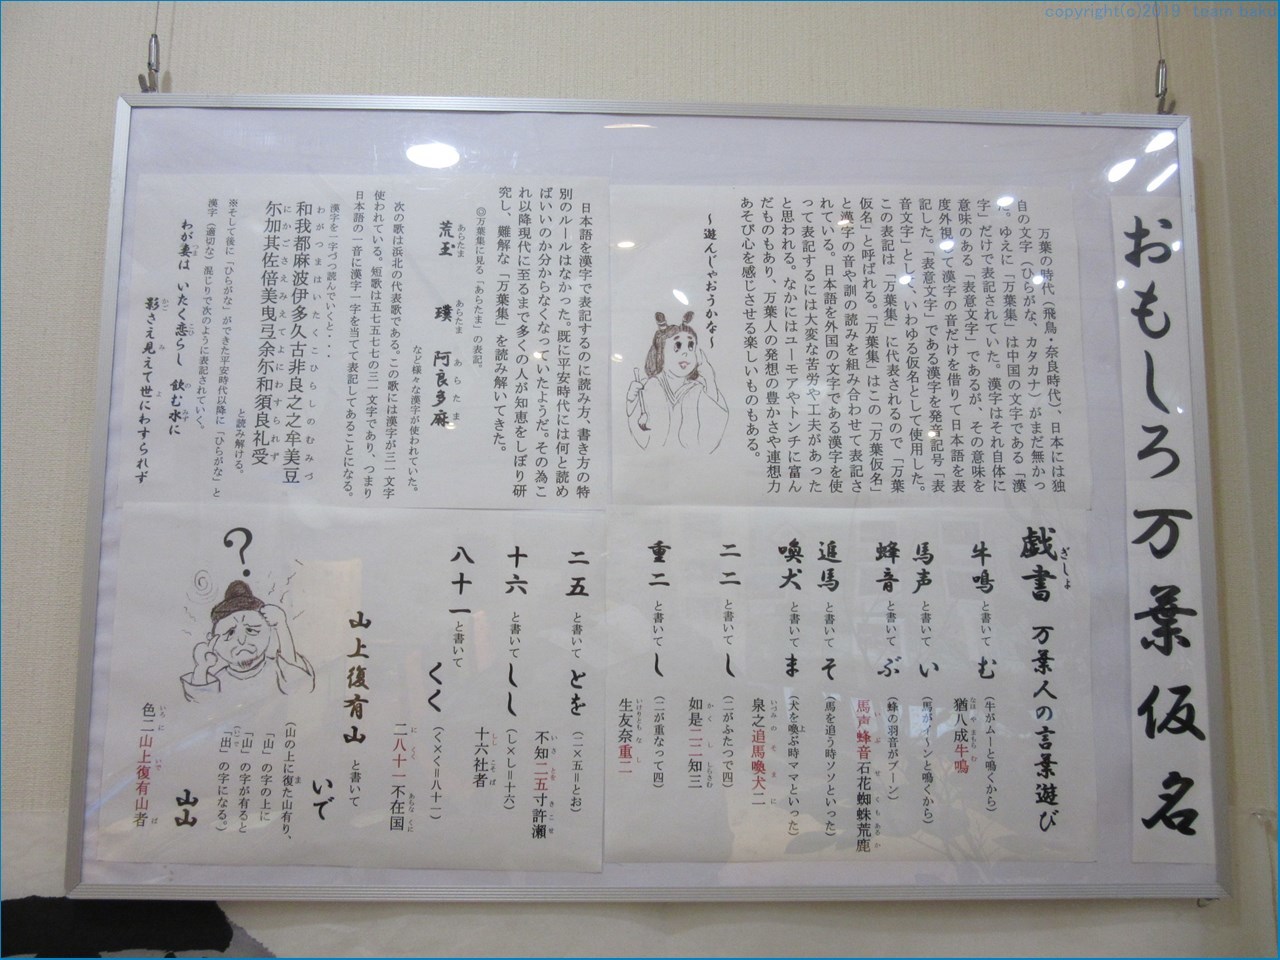 copyright(c)2019 team baku
おもしろ万葉仮名
万葉の時代（飛鳥・奈良時代）、日本には独
自の文字（ひらがな、カタカナ）がまだ無かっ
た。ゆえに「万葉集」は中国の文字である「漢
字」だけで表記されていた。漢字はそれ自体に
意味のある「表意文字」であるが、その意味を
度外視して漢字の音だけを借りて日本語を表
記した。「表意文字」である漢字を発音記号「表
音文字」とし、いわゆる仮名として使用した。
この表記は「万葉集」に代表されるので「万葉
仮名」と呼ばれる。「万葉集」はこの「万葉仮名」
と漢字の音や訓の読みを組み合わせて表記さ
れている。日本語を外国の文字である漢字を使
って表記するには大変な苦労や工夫があった
と思われる。なかにはユーモアやトンチに富ん
だものもあり、万葉人の発想の豊かさや連想力
あそび心を感じさせる楽しいものもある。
～遊んじゃおうかな～
日本語を漢字で表記するのに読み方、書き方の特
別のルールはなかった。既に平安時代には何と読め
ばいいのか分からなくなっていたようだ。その為こ
れ以降現代に至るまで多くの人が知恵をしぼり研
究し、難解な「万葉集」を読み解いてきた。
◎万葉集に見る「あらたま」の表記。
荒玉 あらたま 璞 あらたま 阿良多麻 あらたま
など様々な漢字が使われていた。
次の歌は浜北の代表歌である。この歌には漢字が三一文字
使われている。短歌は五七五七七の三一文字であり、つまり
日本語の一音に漢字一字を当てて表記してあることになる。
漢字を一字づつ読んでいくと・・・
わがつまはいたくこひらしのむみづ
和我都麻波伊多久古非良之之牟美豆
にかごさえみえてよにわすられず
尓加其佐倍美曳弖余尓和須良礼受
と読み解ける。
※そして後に「ひらがな」ができた平安時代以降に「ひらがな」と
漢字（適切な）混じりで次のように表記されていく。
わが妻は いたく恋らし 飲む水に
影さえ見えて世にわすられず
戯書 ぎしょ 万葉人の言葉遊び
牛鳴 と書いて む （牛がムーと鳴くから）
猶八成牛鳴
馬声 と書いて い （馬がイーンと鳴くから）
蜂音 と書いて ぶ （蜂の羽音がブーン）
馬声蜂音石花蜘蛛荒鹿
追馬 と書いて そ （馬を追う時ソソといった）
喚犬 と書いて ま （犬を喚ぶ時ママといった）
泉之追馬喚犬二
二二 と書いて し （二がふたつで四）
如是二二知三
重二 と書いて し （二が重なって四）
生友奈重二
二五 と書いて とを （二×五＝とお）
不知二五寸許瀬
十六 と書いて しし （し×し＝十六）
十六社者
八十一 と書いて くく （く×く＝八十一）
二八十一不在国
山上復有山 と書いて いで
（山の上に復た山有り、
「山」の字の上に
「山」の字が有ると
「出」の字になる。）
山山
色二山上復有山者
？